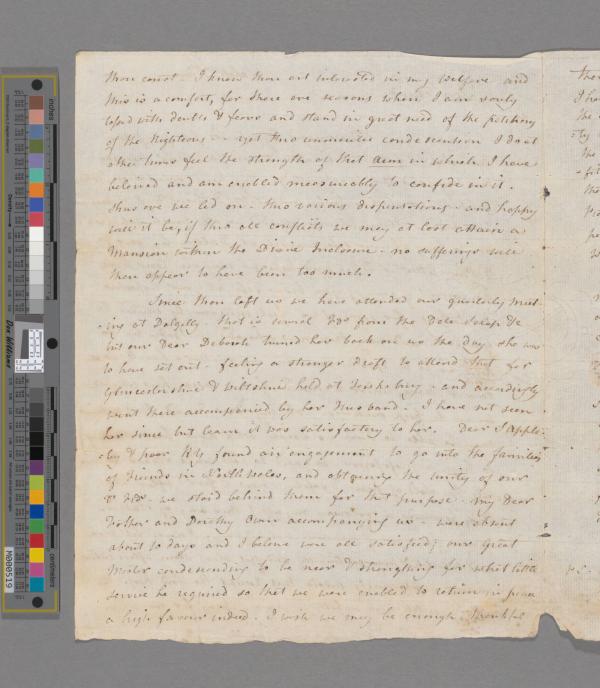 thou canst. I know thou art interested in my welfare and
this is a comfort, for there are seasons when I am sorely
beset with doubts & fears and stand in great need of the petitions
of the Righteous - yet thro unmerited condescension I do at
other times feel the strength of that Arm in which I have
believed and am enabled measurably to confide in it.
thus are we led on - thro various dispensations - and happy
will it be, if thro all conflicts we may at last attain a
Mansion within the Divine Inclosure - no sufferings will
then appear to have been too much.
Since thou left us we have attended our quarterly meet-
ing at Dolgelly that is several Frds from the Dale &c
but our Dear Deborah turned her back on us the day she was
to have set out - feeling a stronger draft to attend that for
Gloucestershire & Wiltshire held at Tewksbury - and accordingly
went there accompanied by her Husband. I have not seen
her since but learn it was satisfactory to her. Dear S Apple-
-by & poor RY found an engagement to go into the families
of Friends in North Wales, and obtaining the unity of our
Frds - we staid behind them for that purpose - my Dear
Father and Dorothy Owen accompanying us - were absent
about 10 days and I believe were all satisfied; our Great
Master condescending to be near & strengthing for what little
service he required so that we were enabled to return in peace
a high favour indeed. I wish we may be enough thankful
Ther
I ha
the
-by
the
fr
tho
pe
Inches
centimetres
Don Williams
M000519